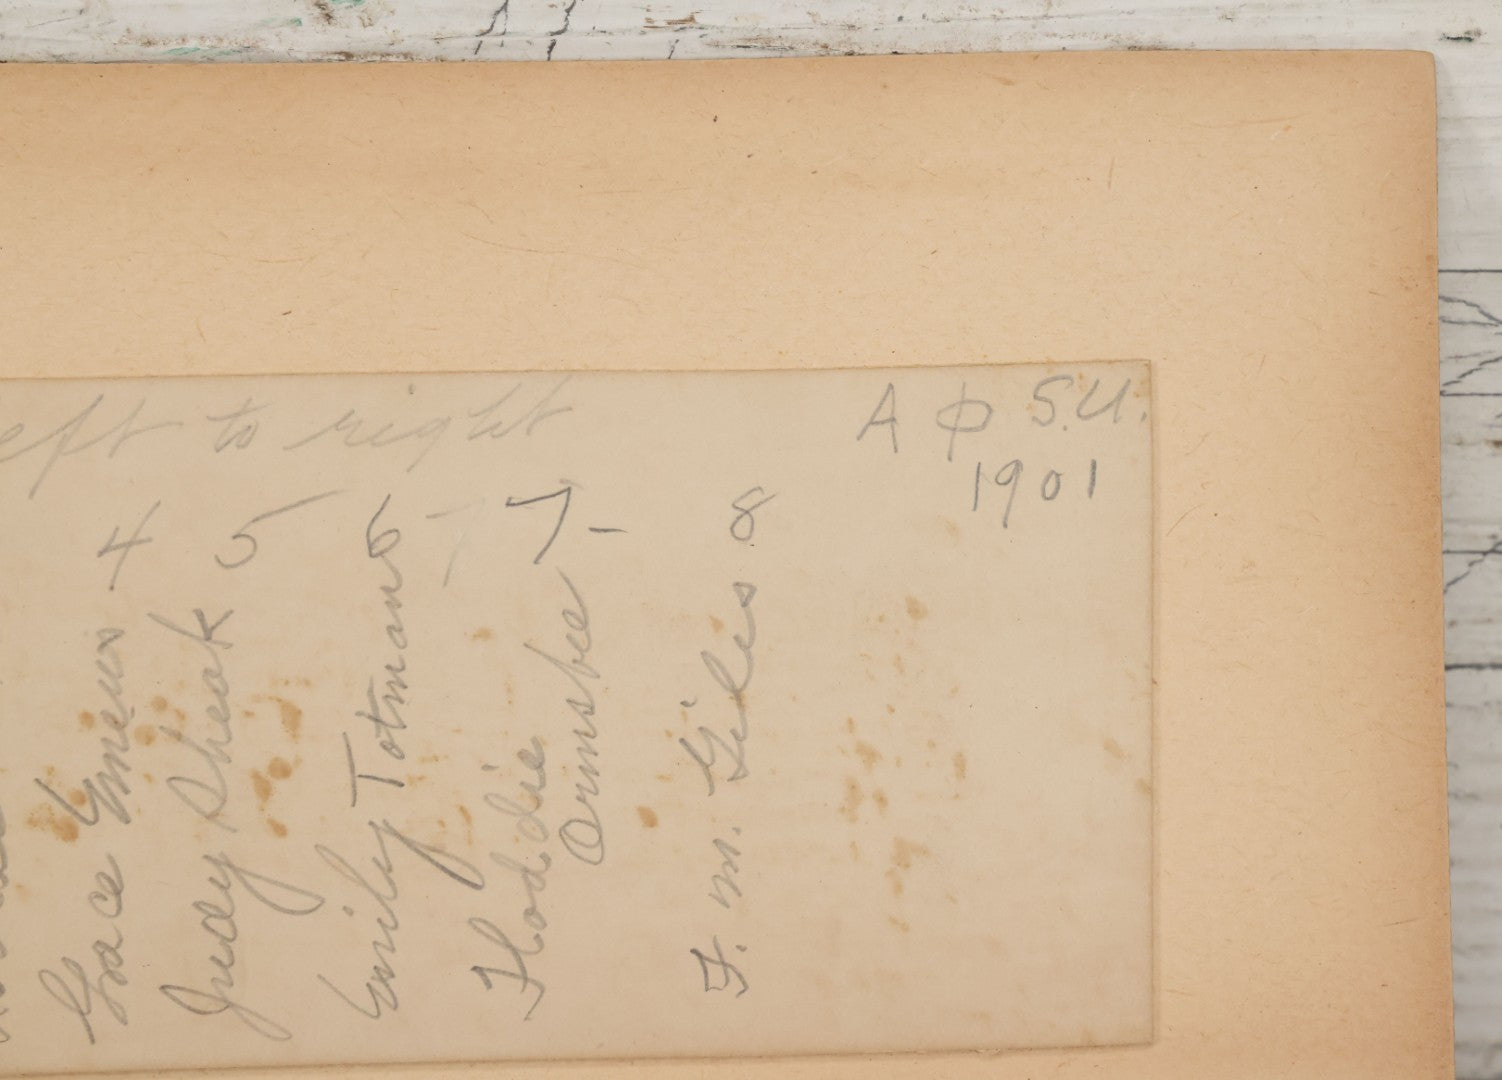 eft to right
A Φ S.U.
1901
Grace Emens 4
Judy Sheak 5
Emily Totman 6
7
Floddie 7-
Ormsbee
F. M. Giles 8